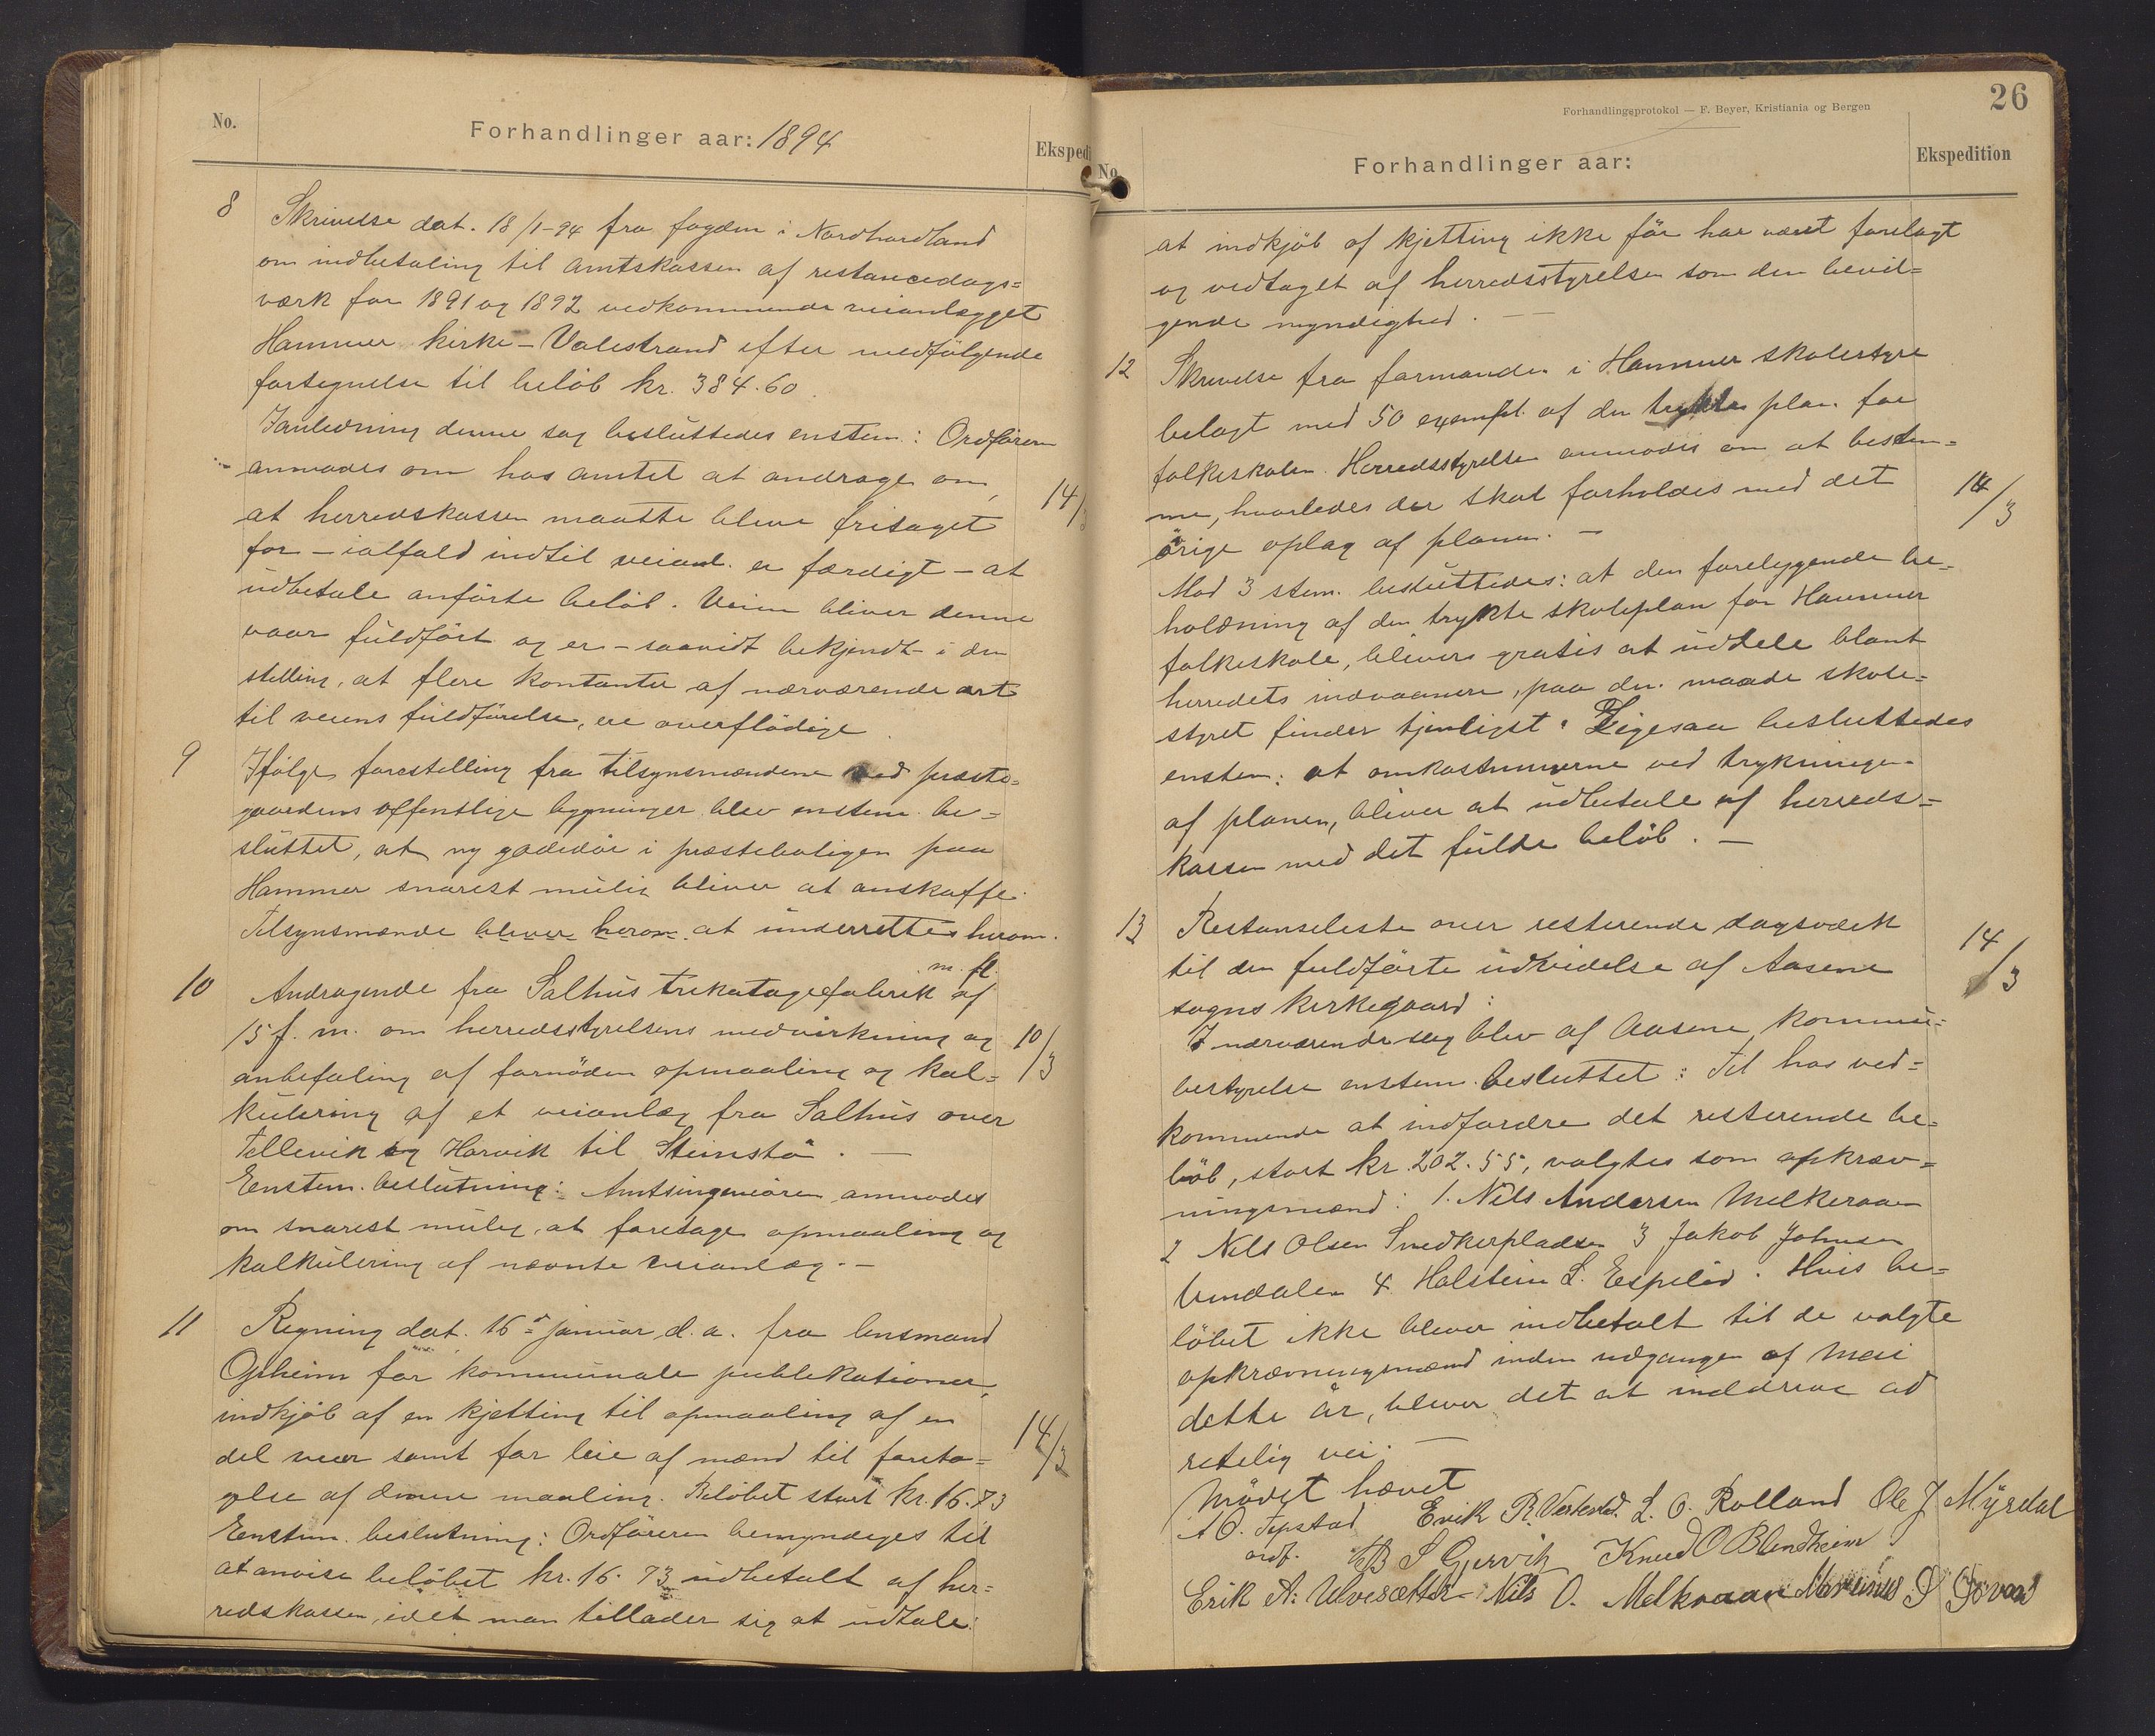 No.
Forhandlinger aar: 1894
Ekspedi
8 Skrivelse dat. 18/1-94 fra fogden i Nordhordland
om indbetaling til amtskassen af restancedags=
værk for 1891 og 1892 vedkommende veianlægget
Hammer kirke - Valestrand efter medfølgende
fortegnelse til beløb kr. 384.60.
I anledning denne sag besluttedes enstem: Ordføreren
anmodes om hos amtet at andrage om,
at herredskassen maatte blive fritaget
14/3
for - ialfald indtil veianl. er færdigt - at
udbetale anførte beløb. Veien bliver denne
vaar fuldført og er - saavidt bekjendt - i den
stelling, at flere kontanter af nærværende art
til veiens fuldførelse, er overflødige.
9 Ifølge forestelling fra tilsynsmændene ved præste=
gaardens offentlige bygninger blev enstem. be=
sluttet, at ny gadedør i præsteboligen paa
Hammer snarest mulig bliver at anskaffe.
Tilsynsmænde bliver herom at underrettes herom.
10 Andragende fra Salhus trikotagefabrik m. fl. af
15 f. m. om herredsstyrelsens medvirkning og
10/3
anbefaling af fornøden opmaaling og kal=
kulering af et veianlæg fra Salhus over
Tellevik og Horvik til Steinstø. —
Eenstem. beslutning: Amtsingeniøren anmodes
om snarest mulig at foretage opmaaling og
kalkulering af nævnte veianlæg. —
11 Regning dat. 16de januar d. a. fra lensmand
Opheim for kommunale publikationer,
indkjøb af en kjetting til opmaaling af en
14/3
del veier samt for leie af mænd til foreta=
gelse af denne maaling. Beløbet stort kr. 16.73
Eenstem. beslutning: Ordføreren bemyndiges til
at anvise beløbet kr. 16.73 udbetalt af her=
redskassen, idet man tillader sig at udtale:
26
Forhandlingsprotokol — F. Beyer, Kristiania og Bergen
No.
Forhandlinger aar:
Ekspedition
at indkjøb af kjetting ikke før har været forelagt
og vedtaget af herredsstyrelsen som den bevil=
gende myndighed. —
12 Skrivelse fra formanden i Hammer skolestyre
belagt med 50 exempl. af den trykte plan for
folkeskolen. Herredsstyrelsen anmodes om at bestem=
me, hvorledes der skal forholdes med det
14/3
øvrige oplag af planen. —
Mod 3 stem. besluttedes: at den foreliggende be=
holdning af den trykte skoleplan for Hammer
folkeskole, blivers gratis at uddele blant
herredets indvaanere, paa den maade skole=
styret finder tjenligst. Ligesaa besluttedes
enstem: at omkostningerne ved trykningen
af planen, bliver at udbetale af herreds=
kassen med det fulde beløb. —
13 Restanseliste over resterende dagsværk
14/3
til den fuldførte udvidelse af Aasene
sogns kirkegaard:
I nærværende sag blev af Aasene kommu=
bestyrelse enstem. besluttet: Til hos ved=
kommende at indfordre det resterende be=
løb, stort kr. 202.55, valgtes som opkræv=
ningsmænd: 1. Nils Andersen Melkeraaen
2 Nils Olsen Snedkerpladsen 3 Jakob Johnsen
4 Holstein L. Espelid. Hvis be=
løbet ikke bliver indbetalt til de valgte
opkrævningsmænd inden udgangen af Mai
dette år, bliver det at inddrive ad
retslig vei. —
Mødet hævet
A O. Tepstad Erik R. L. O. Rolland Ole J Myrdal
ordf. B S Gjervik Knud O Blindheim
Erik A. Ulvesætter Nils O. Melkraaen Martinus